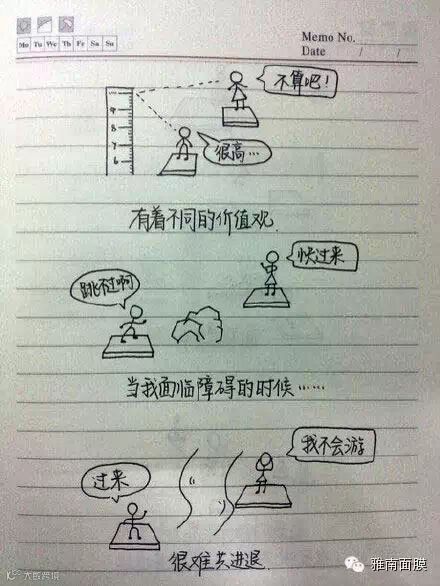 Memo No.
Mo Tu We Th Fr Sa Su
Date / /
不算吧!
9
8
很高…
7
6
有着不同的价值观.
快过来
跳不过啊
当我面临障碍的时候……
我不会游
过来
很难共进退.
雅南面膜
大数跨境